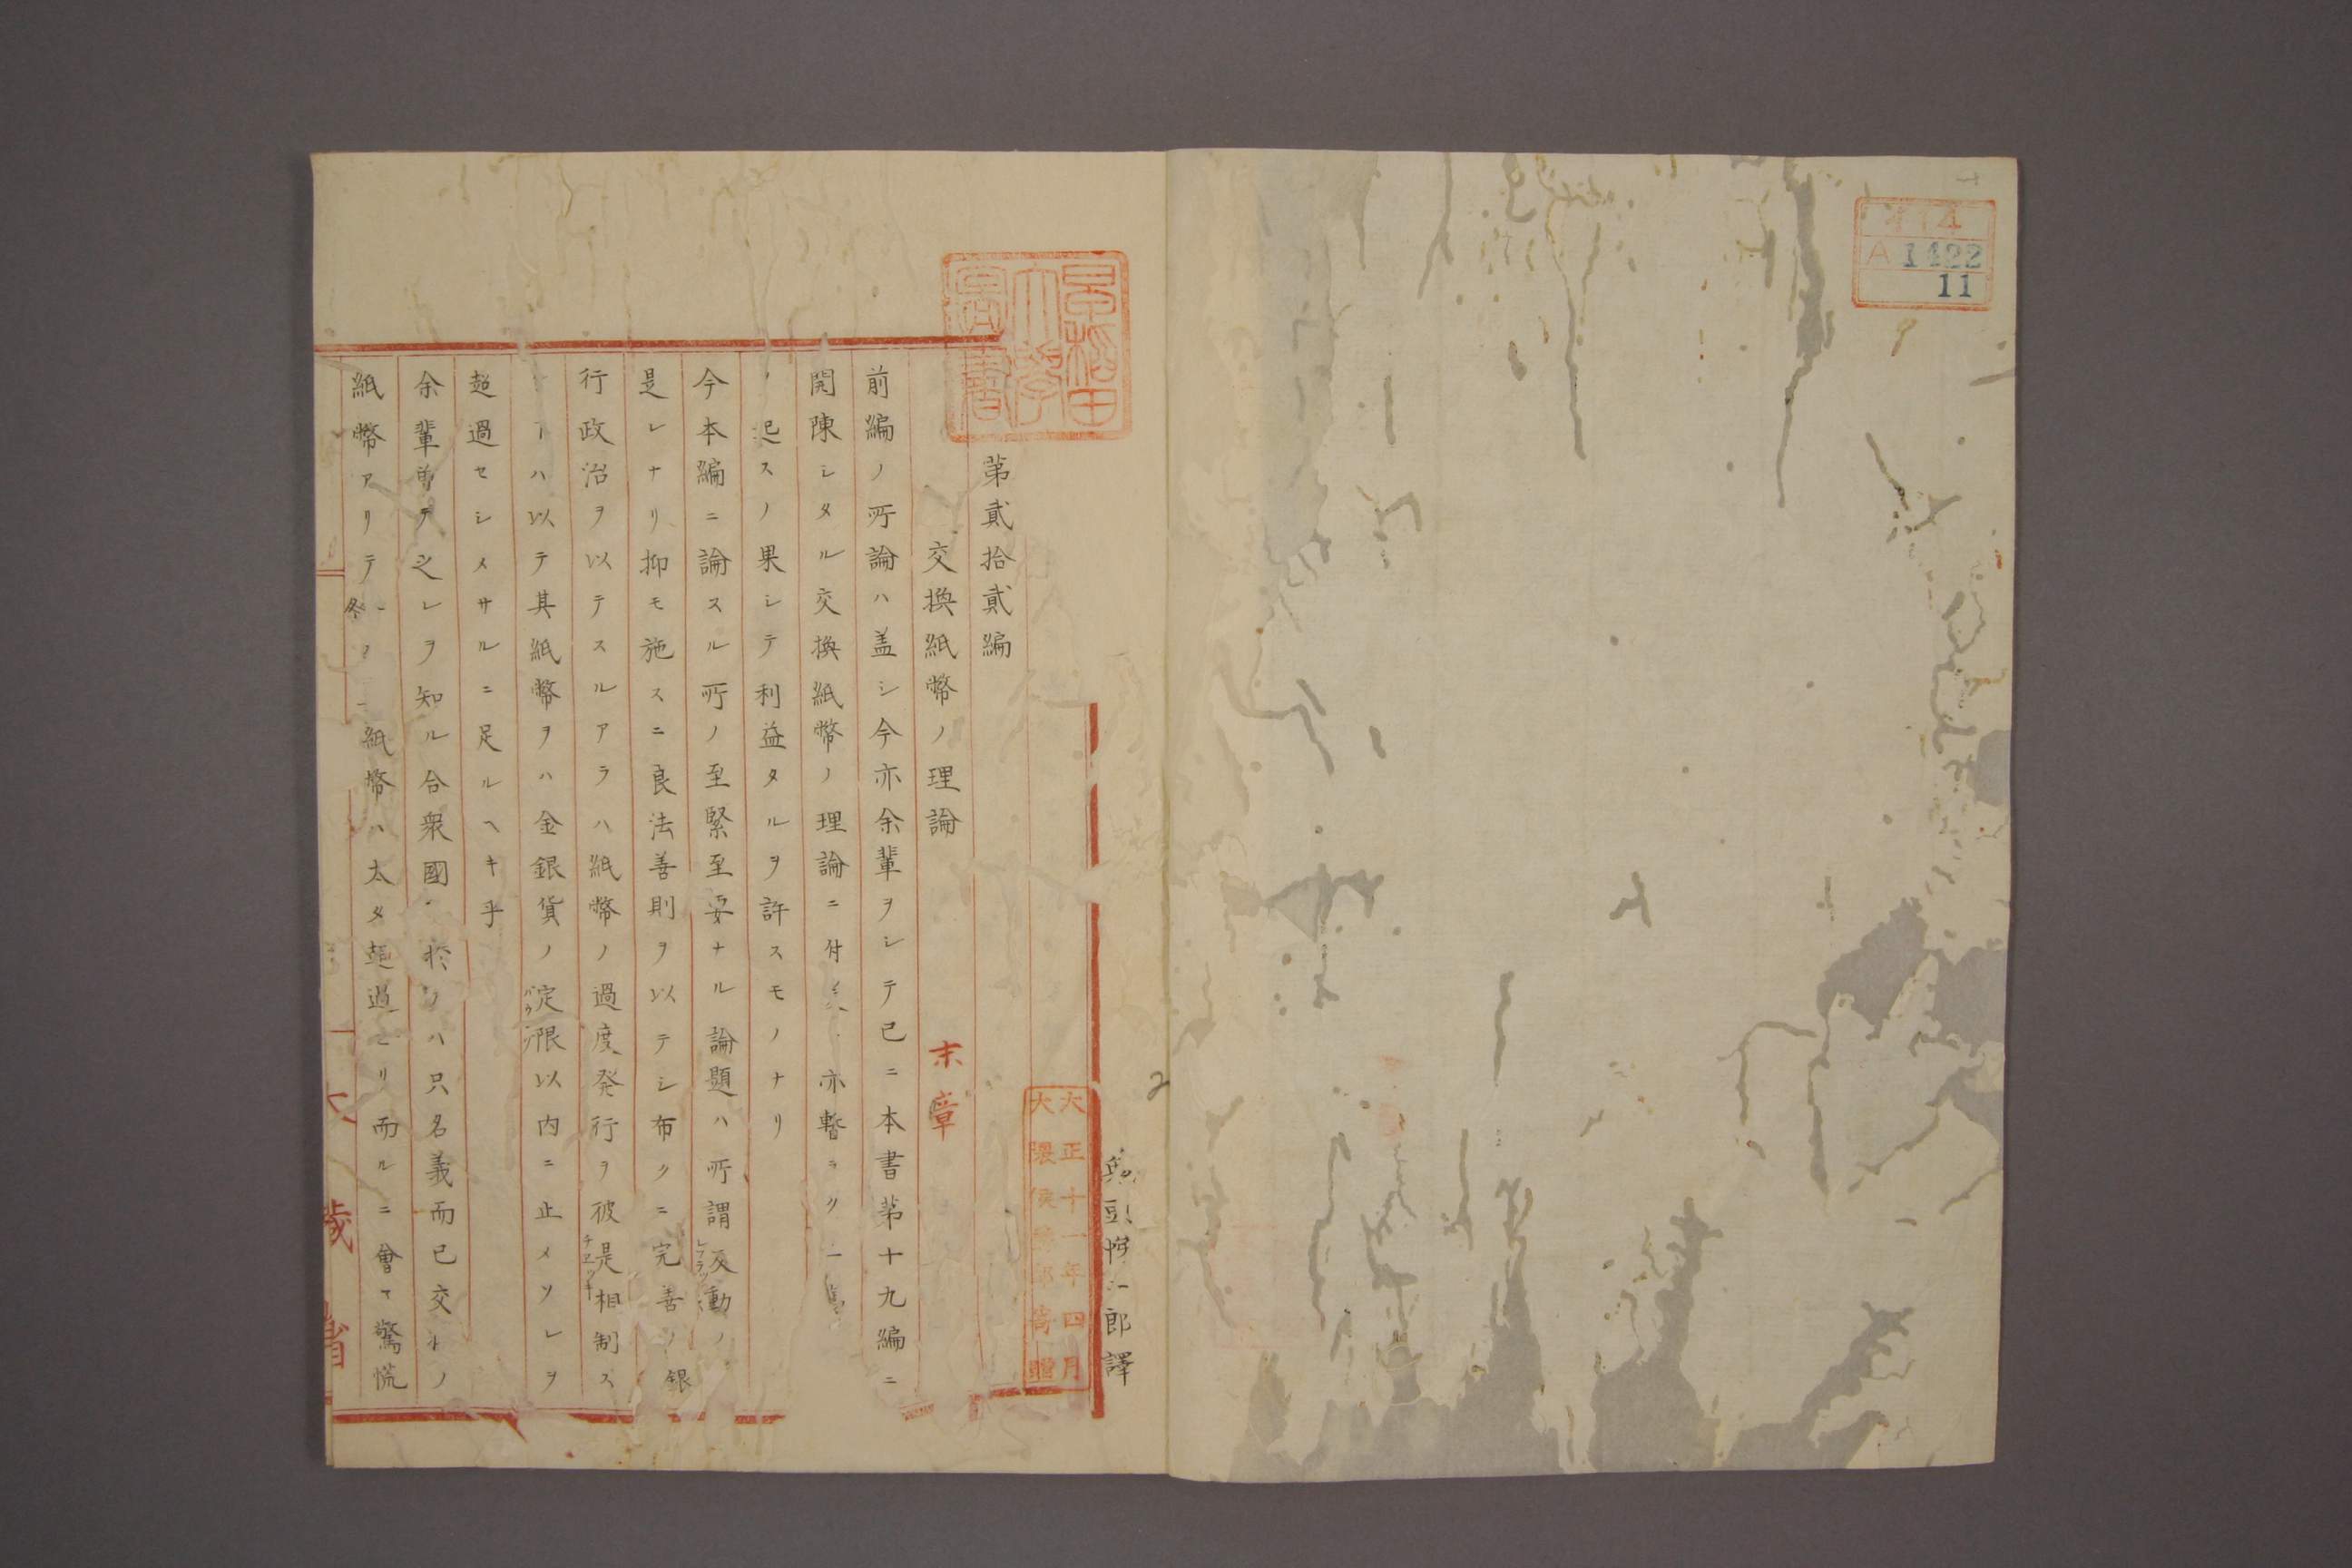 414
A 1422
11
早稲田
大學
圖書
大正十一年四月
大隈侯爵邸寄贈
郎譯
第貳拾貳編
交換紙幣ノ理論 末章
前編ノ所論ハ盖シ今亦余輩ヲシテ已ニ本書第十九編ニ
開陳シタル交換紙幣ノ理論ニ付 亦暫ラク
起スノ果シテ利益タルヲ許スモノナリ
今本編ニ論スル所ノ至緊至要ナル論題ハ所謂反動ノ
是レナリ抑モ施スニ良法善則ヲ以テシ布クニ完善ノ銀
行政治ヲ以テスルアラハ紙幣ノ過度発行ヲ彼是相制ス
チエッキ
ハ以テ其紙幣ヲハ金銀貨ノ定限以内ニ止メソレヲ
超過セシメサルニ足ルヘキ乎
余輩曽テ之レヲ知ル合衆國 於 ハ只名義而已交 ノ
紙幣アリテ 紙幣ハ太タ超過 リ而ルニ會 驚慌
大藏省